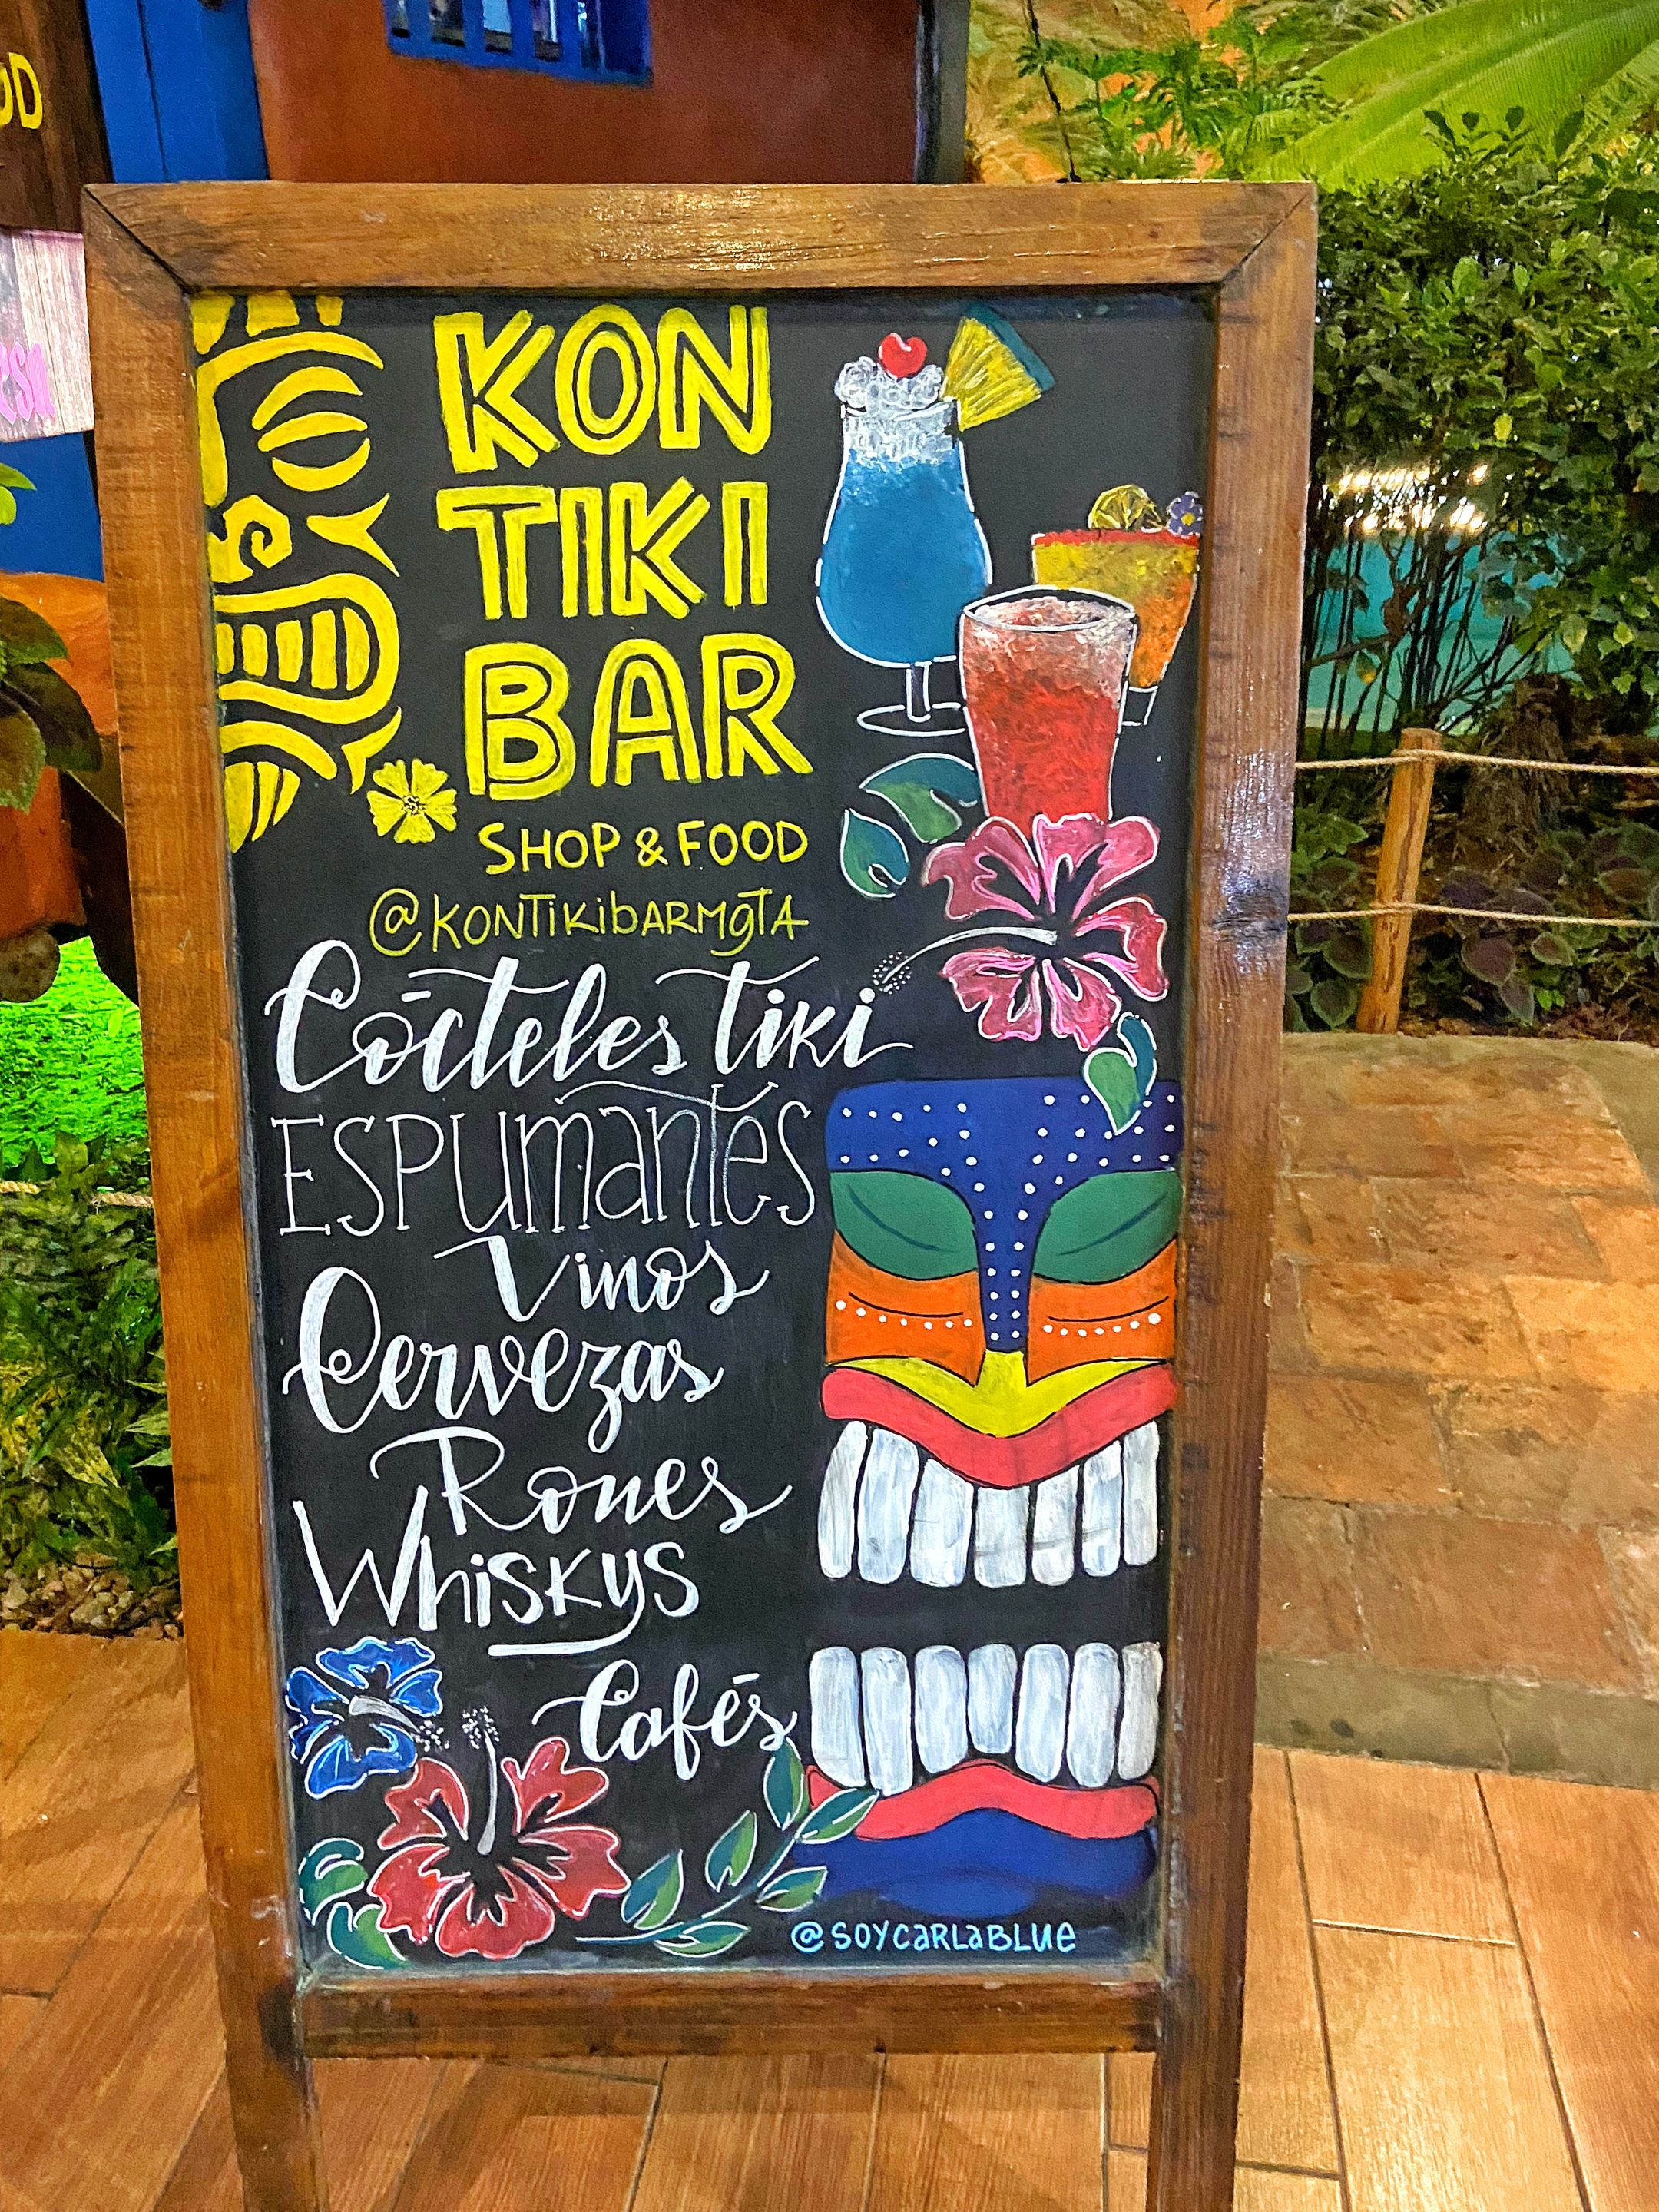 OD
KON
TIKI
BAR
SHOP & FOOD
@KONTIKIBARMGTA
Cócteles Tiki
ESPUMANTES
Vinos
Cervezas
Rones
Whiskys
Cafés
@SOYCARLABLUE